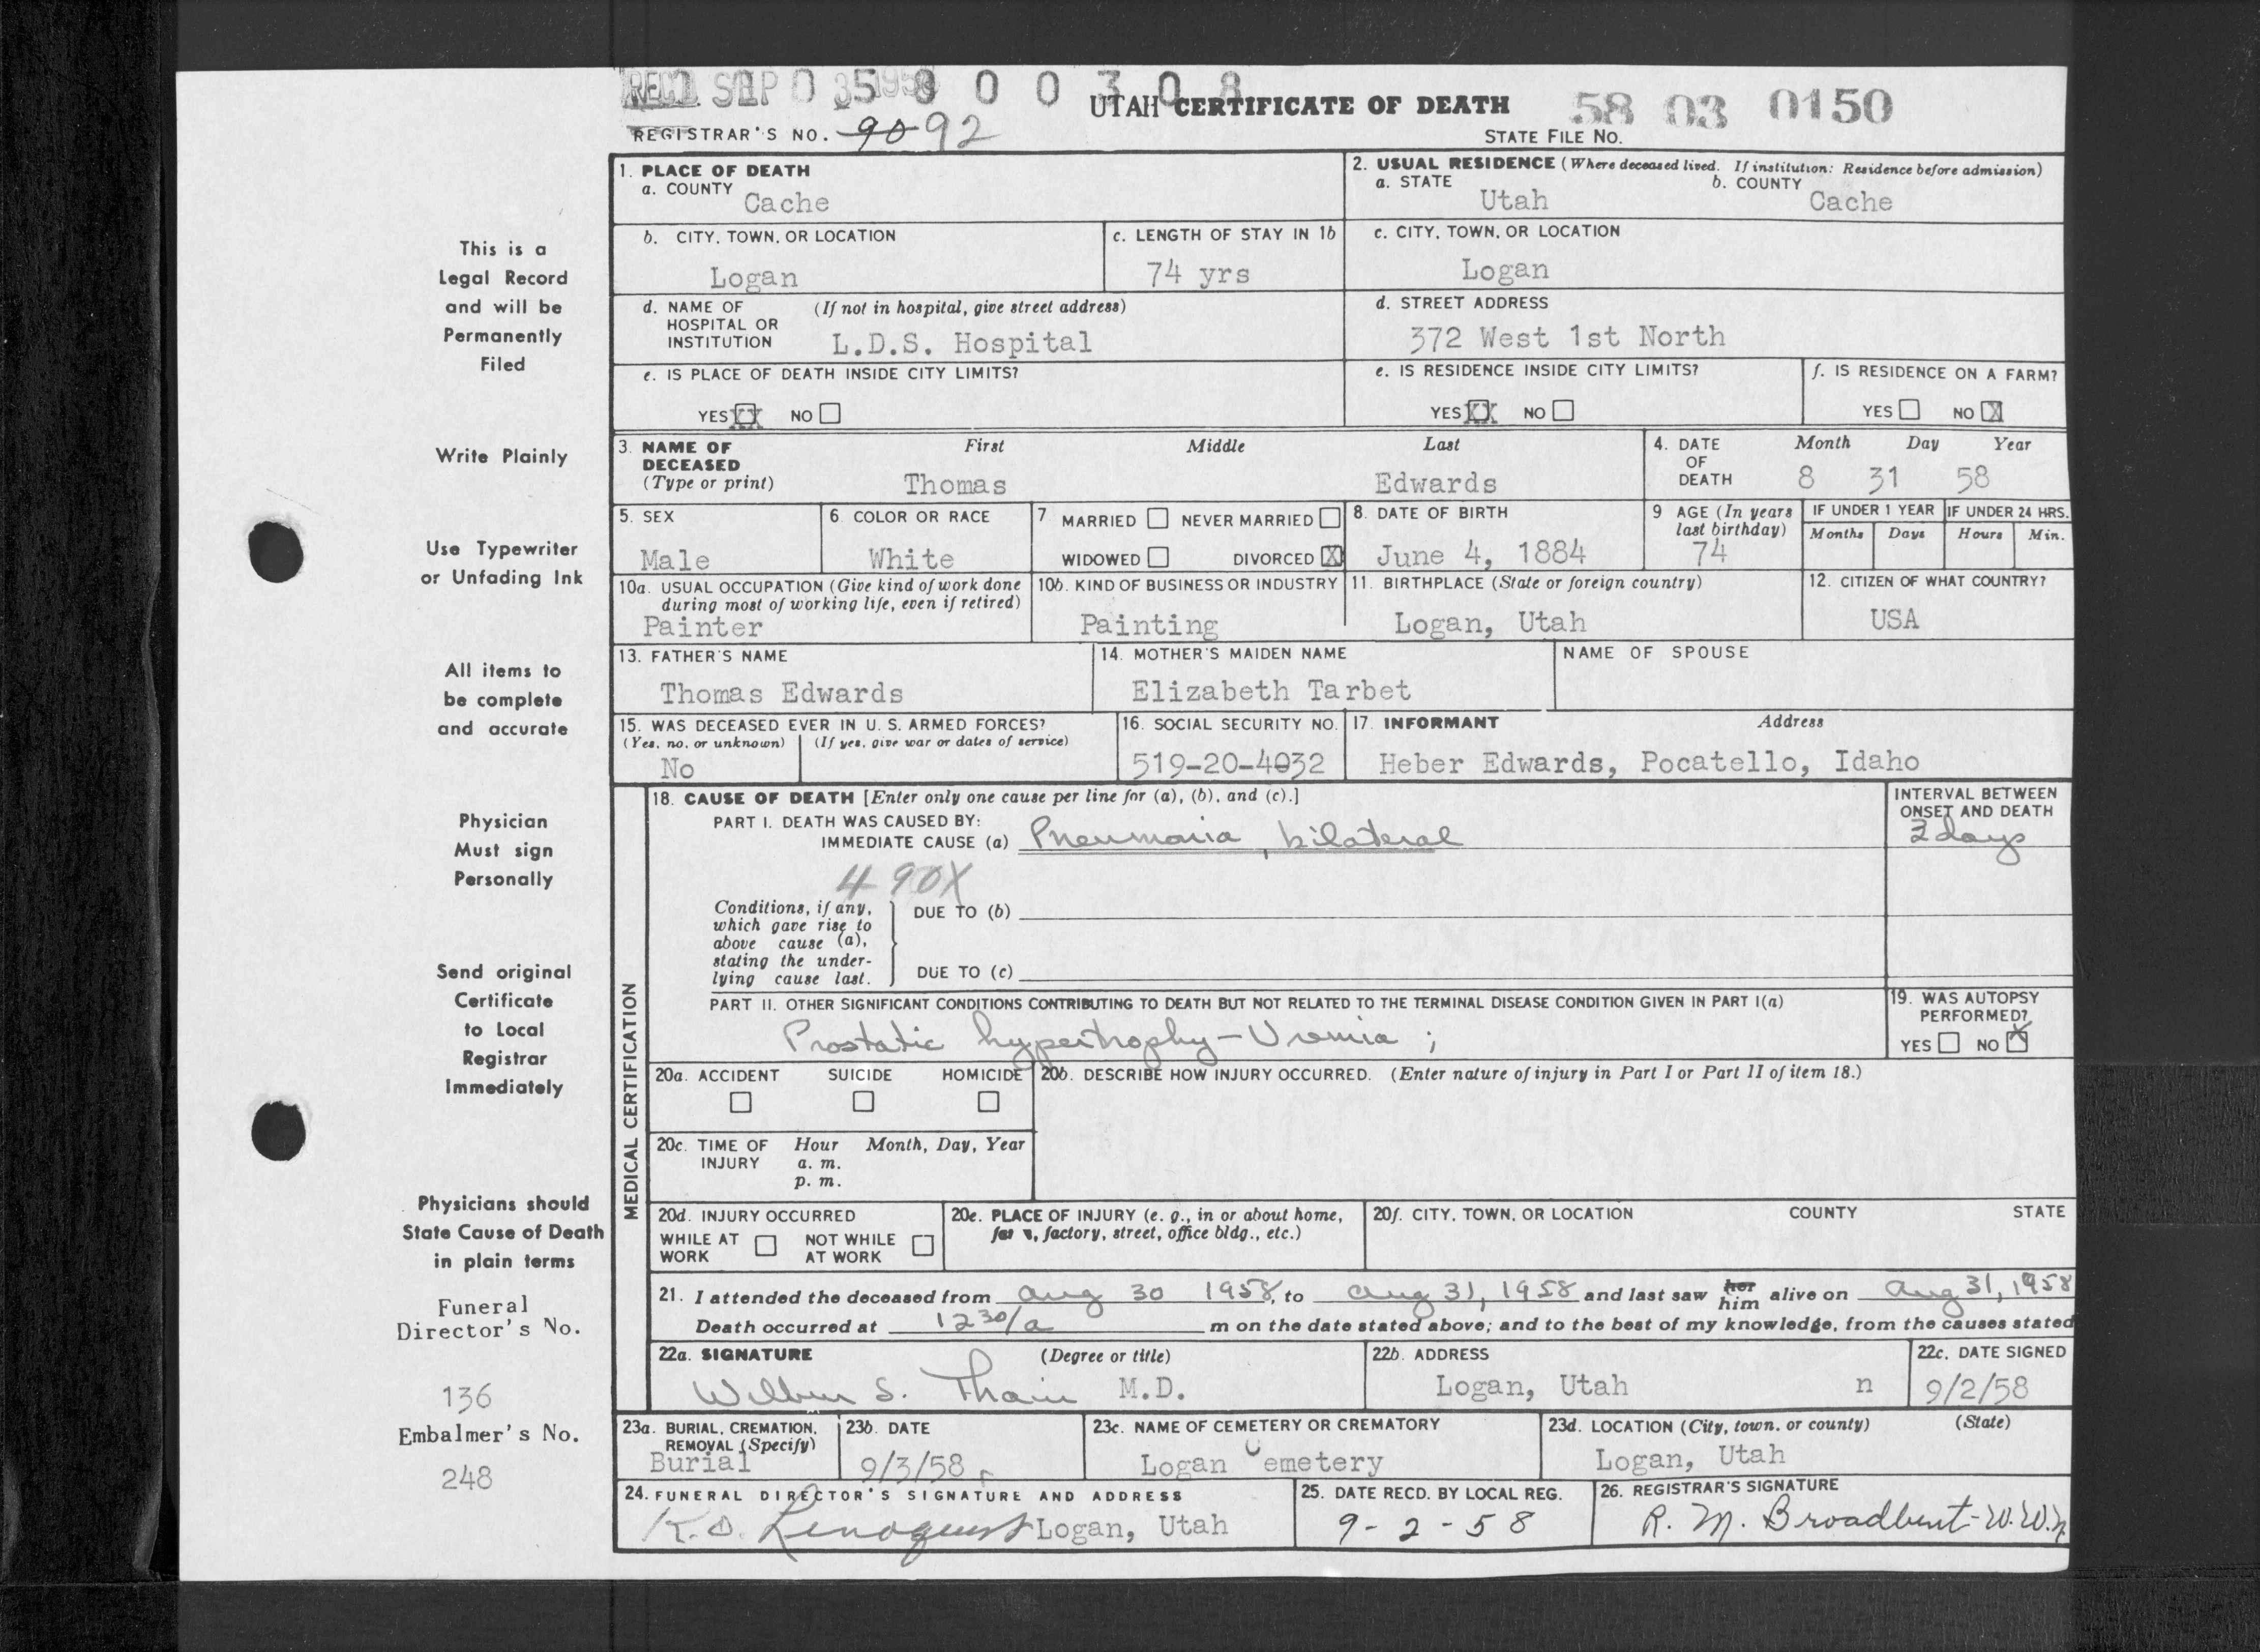 REC'D SEP 0 3 1958 5 8 0 0 3 0 8
UTAH CERTIFICATE OF DEATH 58 03 0150
REGISTRAR'S NO. 90 92 STATE FILE NO.
1. PLACE OF DEATH 2. USUAL RESIDENCE (Where deceased lived. If institution: Residence before admission)
a. COUNTY Cache a. STATE Utah b. COUNTY Cache
b. CITY, TOWN, OR LOCATION c. LENGTH OF STAY IN 1b c. CITY, TOWN, OR LOCATION
Logan 74 yrs Logan
d. NAME OF HOSPITAL OR INSTITUTION (If not in hospital, give street address) d. STREET ADDRESS
L.D.S. Hospital 372 West 1st North
e. IS PLACE OF DEATH INSIDE CITY LIMITS? e. IS RESIDENCE INSIDE CITY LIMITS? f. IS RESIDENCE ON A FARM?
YES XX NO YES XX NO YES NO X
3. NAME OF DECEASED (Type or print) First Middle Last 4. DATE OF DEATH Month Day Year
Thomas Edwards 8 31 58
5. SEX 6. COLOR OR RACE 7 MARRIED NEVER MARRIED 8. DATE OF BIRTH 9 AGE (In years last birthday) IF UNDER 1 YEAR IF UNDER 24 HRS.
Months Days Hours Min.
Male White WIDOWED DIVORCED X June 4, 1884 74
10a. USUAL OCCUPATION (Give kind of work done during most of working life, even if retired) 10b. KIND OF BUSINESS OR INDUSTRY 11. BIRTHPLACE (State or foreign country) 12. CITIZEN OF WHAT COUNTRY?
Painter Painting Logan, Utah USA
13. FATHER'S NAME 14. MOTHER'S MAIDEN NAME NAME OF SPOUSE
Thomas Edwards Elizabeth Tarbet
15. WAS DECEASED EVER IN U. S. ARMED FORCES? 16. SOCIAL SECURITY NO. 17. INFORMANT Address
(Yes, no, or unknown) (If yes, give war or dates of service)
No 519-20-4032 Heber Edwards, Pocatello, Idaho
MEDICAL CERTIFICATION
18. CAUSE OF DEATH [Enter only one cause per line for (a), (b), and (c).] INTERVAL BETWEEN ONSET AND DEATH
PART I. DEATH WAS CAUSED BY:
IMMEDIATE CAUSE (a) Pneumonia, bilateral 2 days
490X
Conditions, if any, which gave rise to above cause (a), stating the underlying cause last.
DUE TO (b)
DUE TO (c)
PART II. OTHER SIGNIFICANT CONDITIONS CONTRIBUTING TO DEATH BUT NOT RELATED TO THE TERMINAL DISEASE CONDITION GIVEN IN PART I(a) 19. WAS AUTOPSY PERFORMED?
Prostatic hypertrophy - Uremia ; YES NO X
20a. ACCIDENT SUICIDE HOMICIDE 20b. DESCRIBE HOW INJURY OCCURRED. (Enter nature of injury in Part I or Part II of item 18.)
20c. TIME OF INJURY Hour Month, Day, Year
a. m.
p. m.
20d. INJURY OCCURRED 20e. PLACE OF INJURY (e. g., in or about home, farm, factory, street, office bldg., etc.) 20f. CITY, TOWN, OR LOCATION COUNTY STATE
WHILE AT WORK NOT WHILE AT WORK
21. I attended the deceased from Aug 30 1958, to Aug 31, 1958 and last saw her him alive on Aug 31, 1958
Death occurred at 12 30/a m on the date stated above; and to the best of my knowledge, from the causes stated
22a. SIGNATURE (Degree or title) 22b. ADDRESS 22c. DATE SIGNED
Wilbur S. Thain M.D. Logan, Utah n 9/2/58
23a. BURIAL, CREMATION, REMOVAL (Specify) 23b. DATE 23c. NAME OF CEMETERY OR CREMATORY 23d. LOCATION (City, town, or county) (State)
Burial 9/3/58 Logan Cemetery Logan, Utah
24. FUNERAL DIRECTOR'S SIGNATURE AND ADDRESS 25. DATE RECD. BY LOCAL REG. 26. REGISTRAR'S SIGNATURE
K.D. Lindquist Logan, Utah 9-2-58 R. M. Broadbent-W.W.N.
This is a
Legal Record
and will be
Permanently
Filed
Write Plainly
Use Typewriter
or Unfading Ink
All items to
be complete
and accurate
Physician
Must sign
Personally
Send original
Certificate
to Local
Registrar
Immediately
Physicians should
State Cause of Death
in plain terms
Funeral
Director's No.
136
Embalmer's No.
248